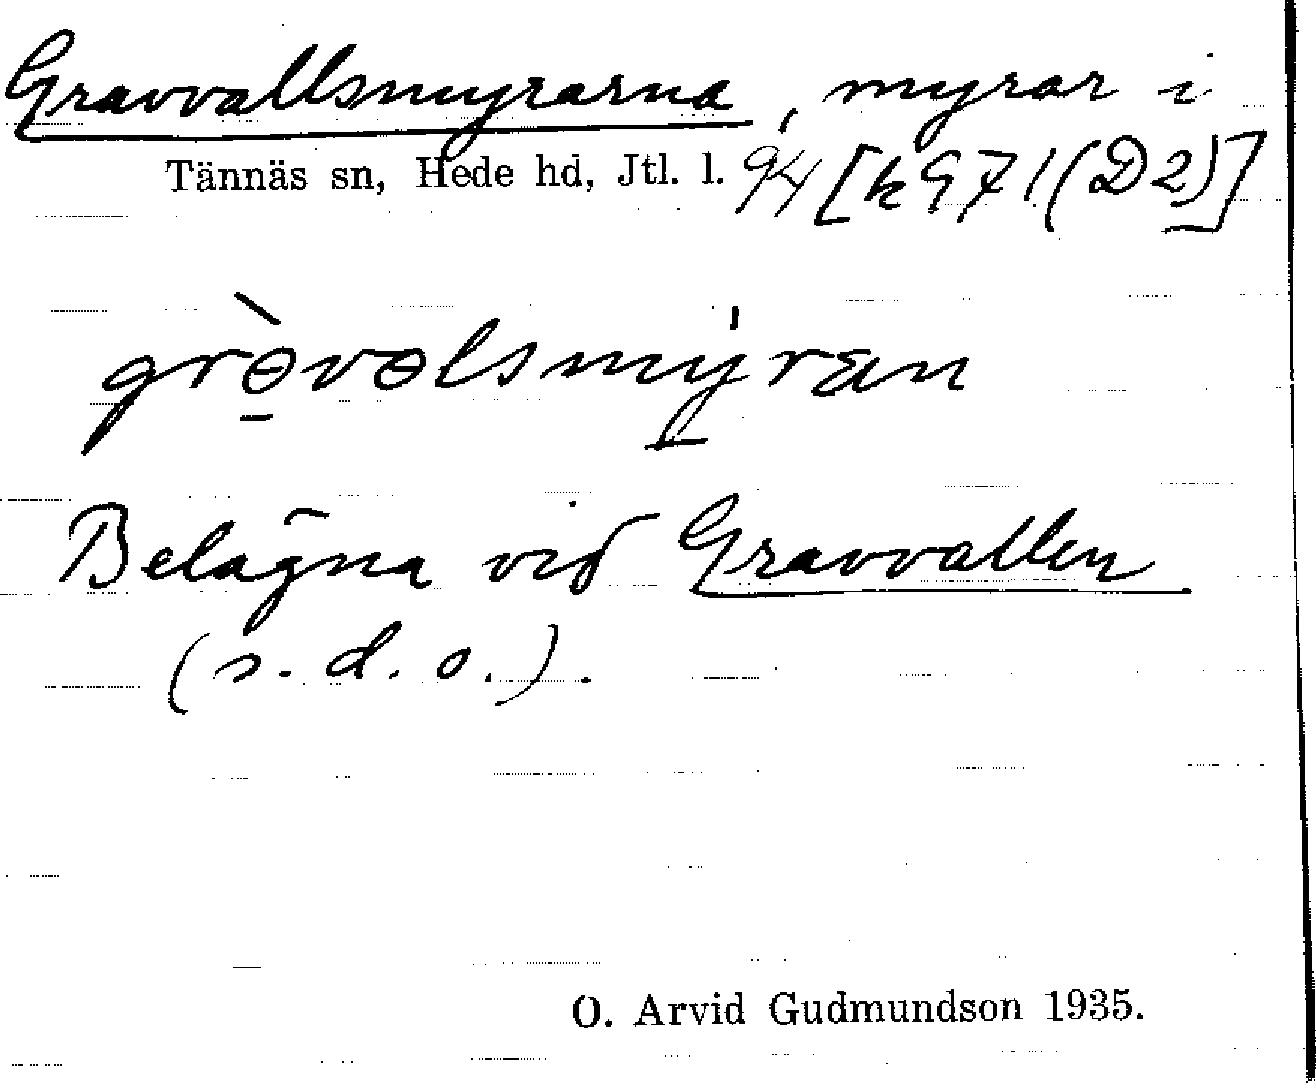 Gravvallsmyrarna, myrar i
Tännäs sn, Hede hd, Jtl. l. 94 [k 971 (D2)]
grɵ̠̀vɵlsmy̠̍ræn
Belägna vid Gravvallen
(s. d. o.).
O. Arvid Gudmundson 1935.